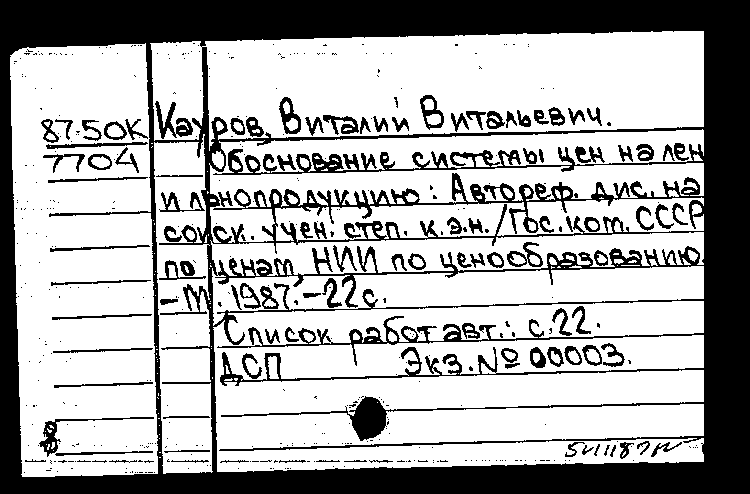 87-50К Кауров, Виталий Витальевич.
7704 Обоснование системы цен на лен
и льнопродукцию: Автореф. дис. на
соиск. учен. степ. к.э.н. /Гос. ком. СССР
по ценам, НИИ по ценообразованию.
-М. 1987.-22с.
Список работ авт.: с.22.
ДСП Экз.№ 00003.